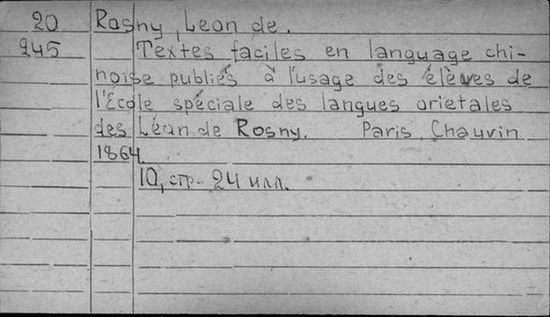 20 Rosny, Leon de.
245 Textes faciles en language chi-
noise publiés à l'usage des élèves de
l'École spéciale des langues orietales
des Léon de Rosny. Paris, Chauvin
1864.
10, стр. 24 илл.